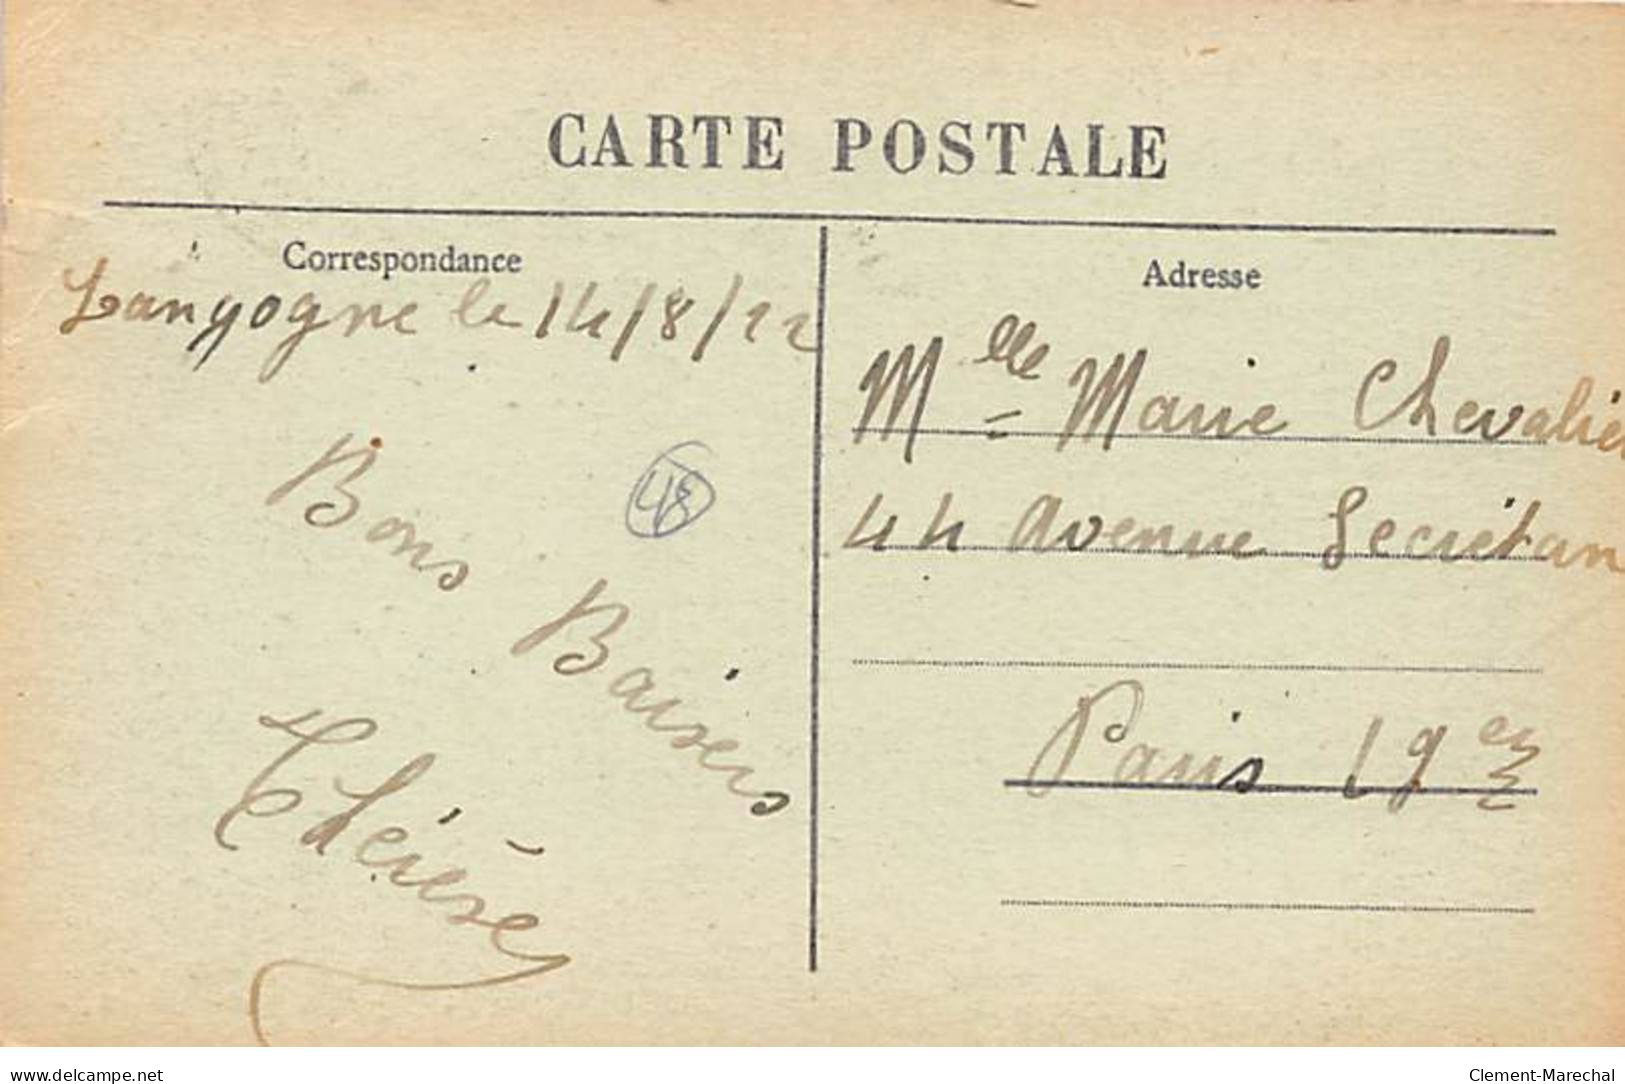 CARTE POSTALE
Correspondance
Langogne le 14/8/22
Bons Baisers
Thérèse
48
Adresse
Melle Marie Chevalier
44 Avenue Secrétan
Paris 19e
delcampe.net
Clement-Marechal